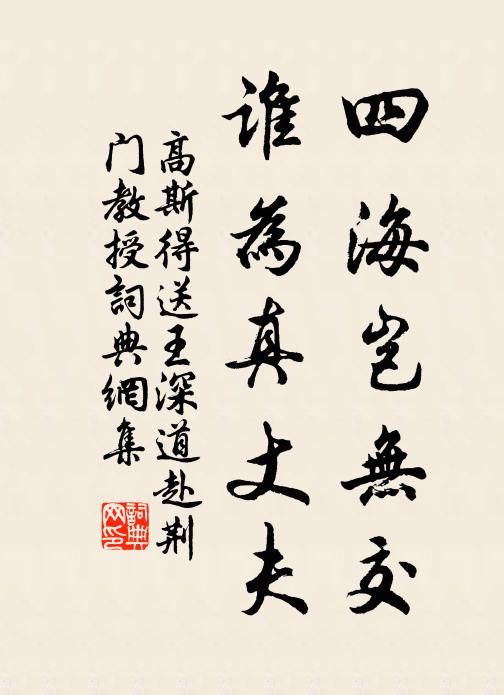 四海岂無交
誰為真丈夫
高斯得送王深道赴荆
门教授詞典網集
詞典
网印